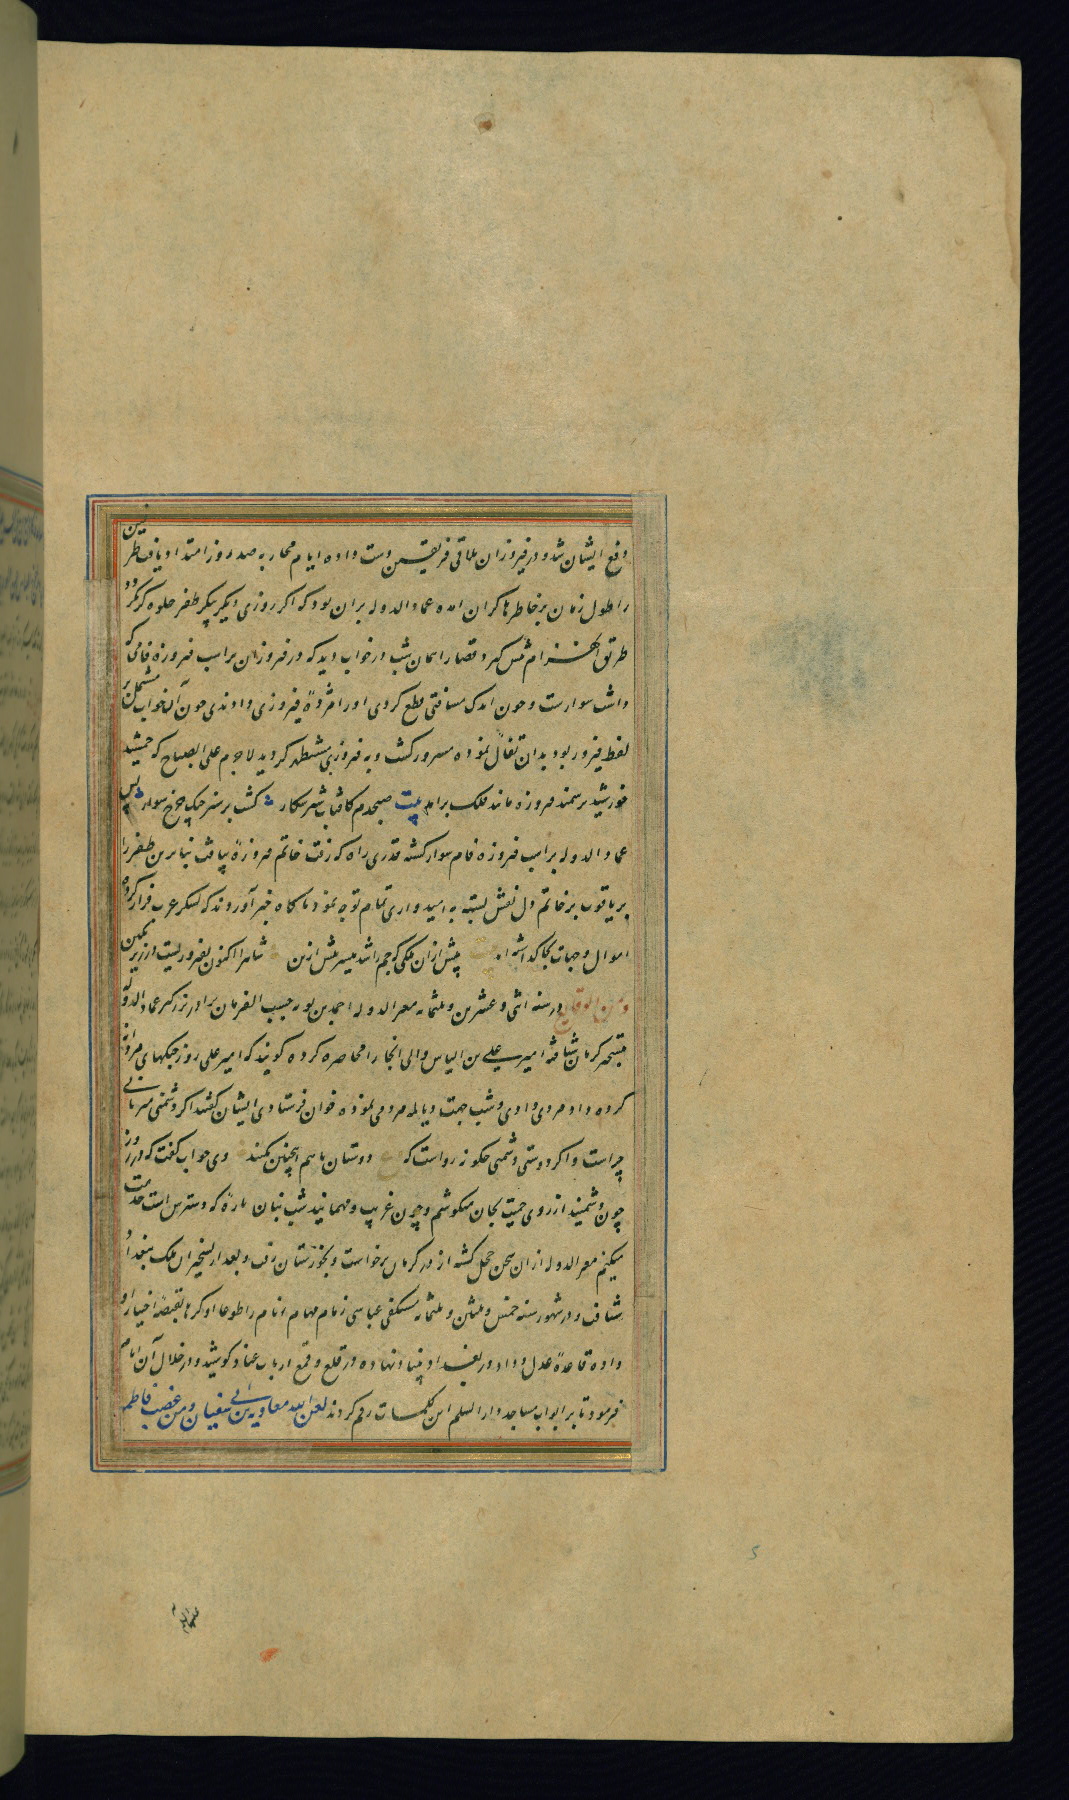 وقع ایشان شد و در فیروزان تلاقی فریقین دست داده ایام محاربه صد روز امتداد یافت طرفین
را طول زمان بر خاطرها گران آمده عماد الدوله بران بود که اگر روزی دیگر پیکر ظفر جلوه گر نگردد
طریق انهزام پیش گیرد قضا را همان شب در خواب دید که در فیروزان بر اسب فیروزه فامی که
داشت سوارست و چون اندک مسافتی قطع کردی او را مژدۀ فیروزی دادندی چون آن خواب مشتمل بر
لفظ فیروز بود بدان تفأل نموده مسرور گشت و به فیروزی مستظهر گردید لاجرم علی الصباح که جمشید
خورشید بر سمند فیروزه مانند فلک برامد بیت صبحدم کافتاب شیر شکار گشت بر سبز خنگ چرخ سوار پس
عماد الدوله بر اسب فیروزه فام سوار گشته قدری راه که رفت خاتم فیروزۀ یافت بنابرین ظفر را
بر خاتم دل نقش بسته به امیدواری تمام توجه نمود ناگاه خبر آوردند که لشکر عرب فرار کرده
اموال و جهات بجا گذاشته اند پیش ازان ملکی که جم را شد میسر پیش ازین شاه را اکنون بفیروزیست در زیر نگین
و من الوقایع در سنه اثنی و عشرین و ثلثمایه معز الدوله احمد بن بویه حسب الفرمان برادر بزرگتر عماد الدوله
بتسخیر کرمان شتافته امیر علی بن الیاس والی انجا را محاصره کرده گویند که امیر علی روز جنگهای مردانه
کرده داد مردی دادی و شب جهت دیالمه مردمی نموده خوان فرستادی ایشان گفتند اگر دشمنی میزبانی
چراست و اگر دوستی دشمنی چگونه رواست که ع دوستان با هم اینچنین نکنند وی جواب گفت که در روز
چون دشمنید از روی حمیت بجان میکوشم و چون غریب و مهمانید شب بنان پارۀ که دسترس است خدمت
میکنم معز الدوله ازان سخن خجل گشته از در کرمان برخاست و بخوزستان رفت و بعد از تسخیر ان ملک ببغداد
شتافت و در شهور سنه خمس و ثلثین و ثلثمایه مستکفی عباسی زمام مهام انام را طوعا او کرها بقبضۀ اختیار او
داده قاعدۀ عدل و داد در بغداد بنیاد نهاده در قلع و قمع ارباب عناد کوشید و در خلال آن ایام
فرمود تا بر ابواب مساجد دار السلم این کلمات رقم کردند لعن الله معاویه بن ابی سفیان و من غصب فاطمه